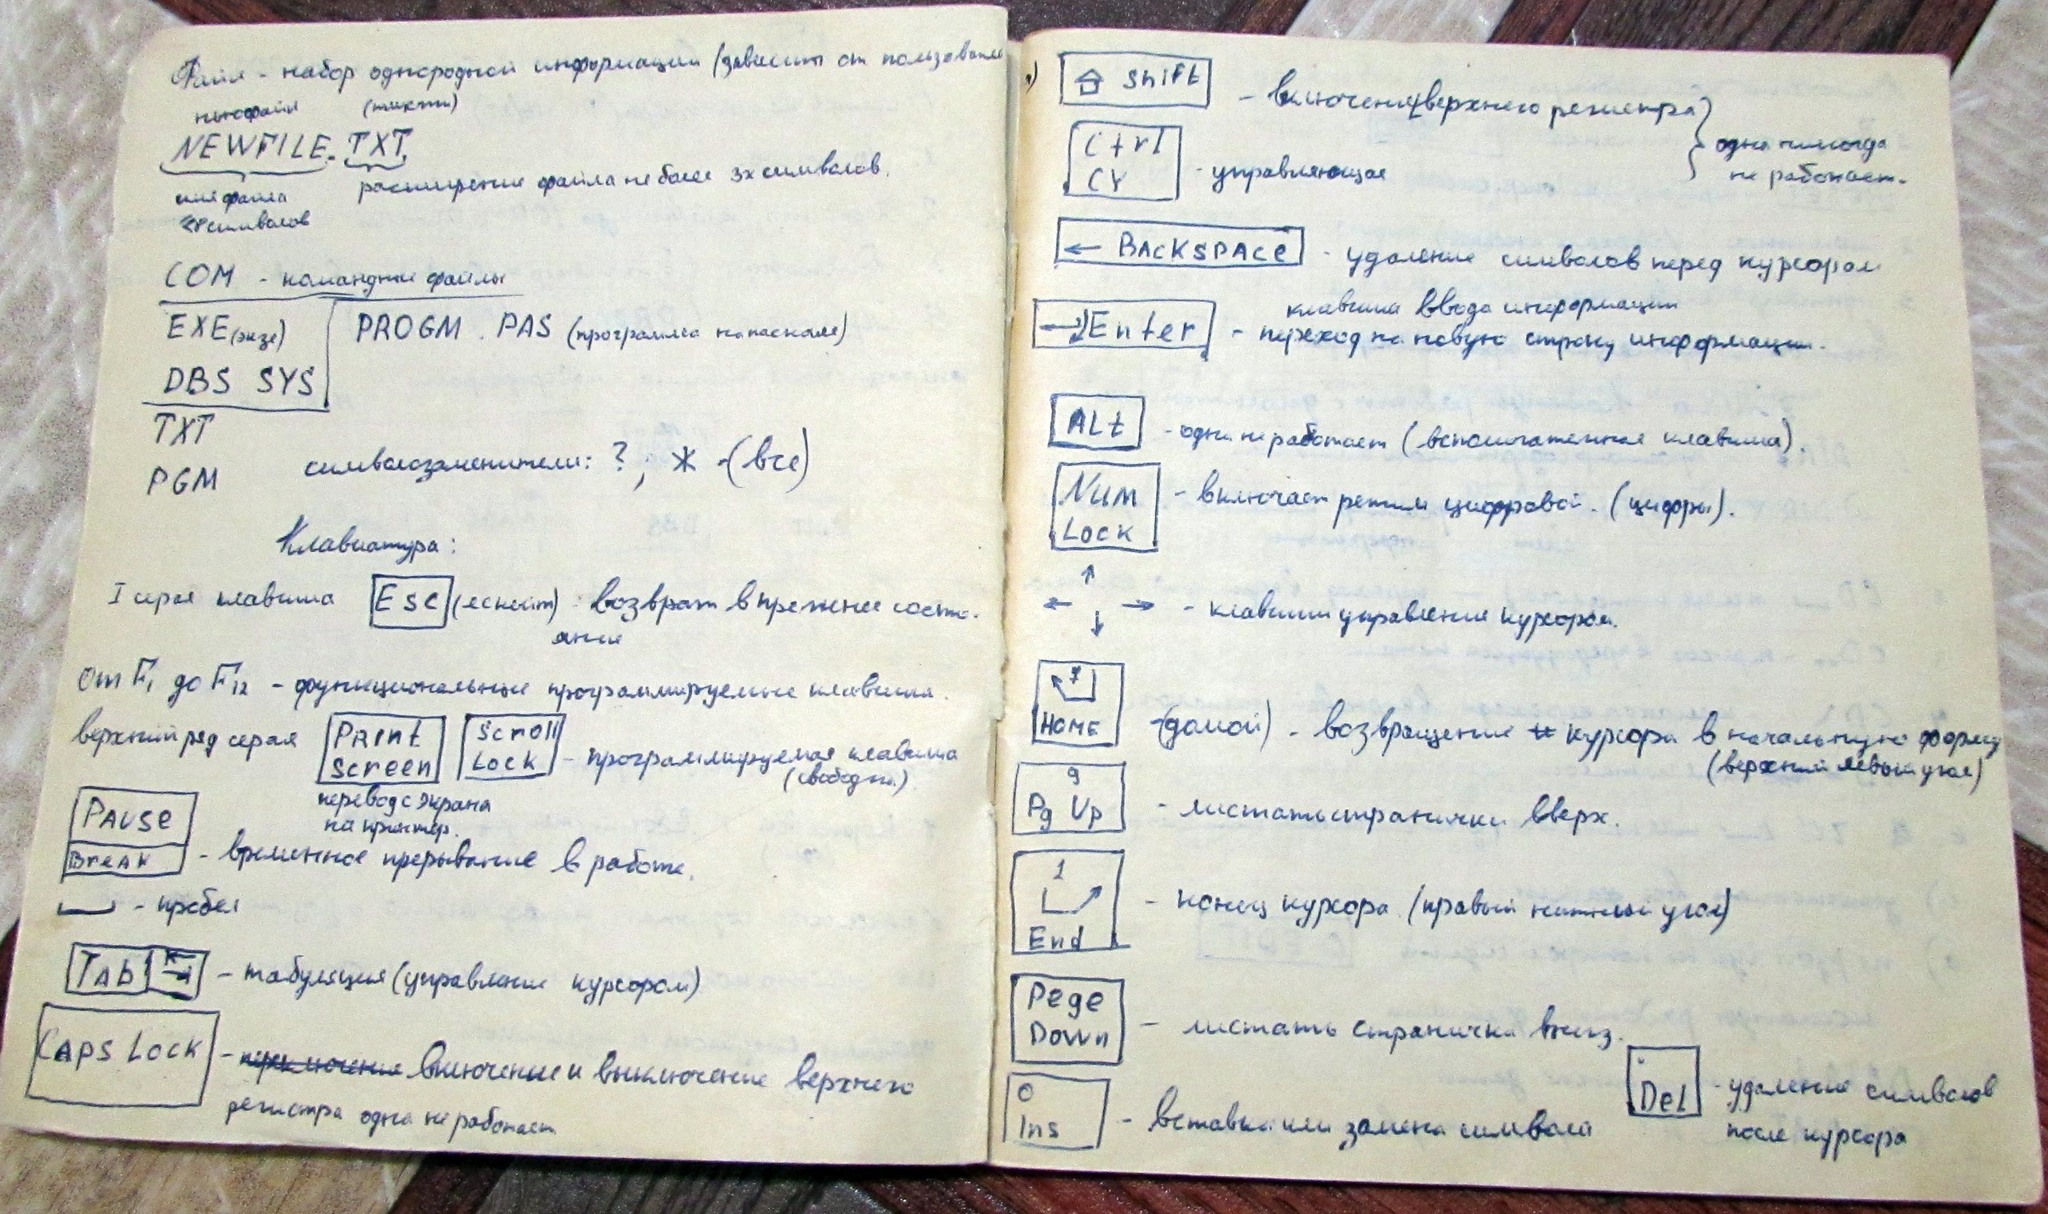 Файл - набор однородной информации (зависит от пользователя
ньюфайл (текст)
NEWFILE. TXT
имя файла расширение файла не более 3х символов.
символов
COM - командные файлы
EXE (экзе) PROGM . PAS (программа на паскале)
DBS SYS
TXT
PGM символозаменители: ? ; * - (все)
Клавиатура:
I серая клавиша Esc (ескейт) - возврат в прежнее состо-
яние
От F1 до F12 - функциональные программируемые клавиши.
верхний ряд серая Print Screen Scroll Lock - программируемая клавиша
(свободны).
перевод с экрана
на принтер.
Pause
Break - временное прерывание в работе.
- пробел
Tab - табуляция (управление курсором)
CAPS LOCK - переключение включение и выключение верхнего
регистра одна не работает
Shift - включение верхнего регистра
Ctrl одна никогда
CY - управляющая не работает.
← BACKSPACE - удаление символов перед курсором
клавиша ввода информации
Enter - переход на новую строку информации.
ALt - одна не работает (вспомогательная клавиша).
NUM
LOCK - включает режим цифровой. (цифры).
↑
← → - клавиши управления курсором.
↓
7
HOME - (домой) - возвращение курсора в начальную форму
(верхний левый угол)
9
Pg Up - листать странички вверх.
1
End - конец курсора (правый нижний угол)
Pege
Down - листать странички вниз.
0
Ins - вставка или замена символа
Del - удаление символов
после курсора